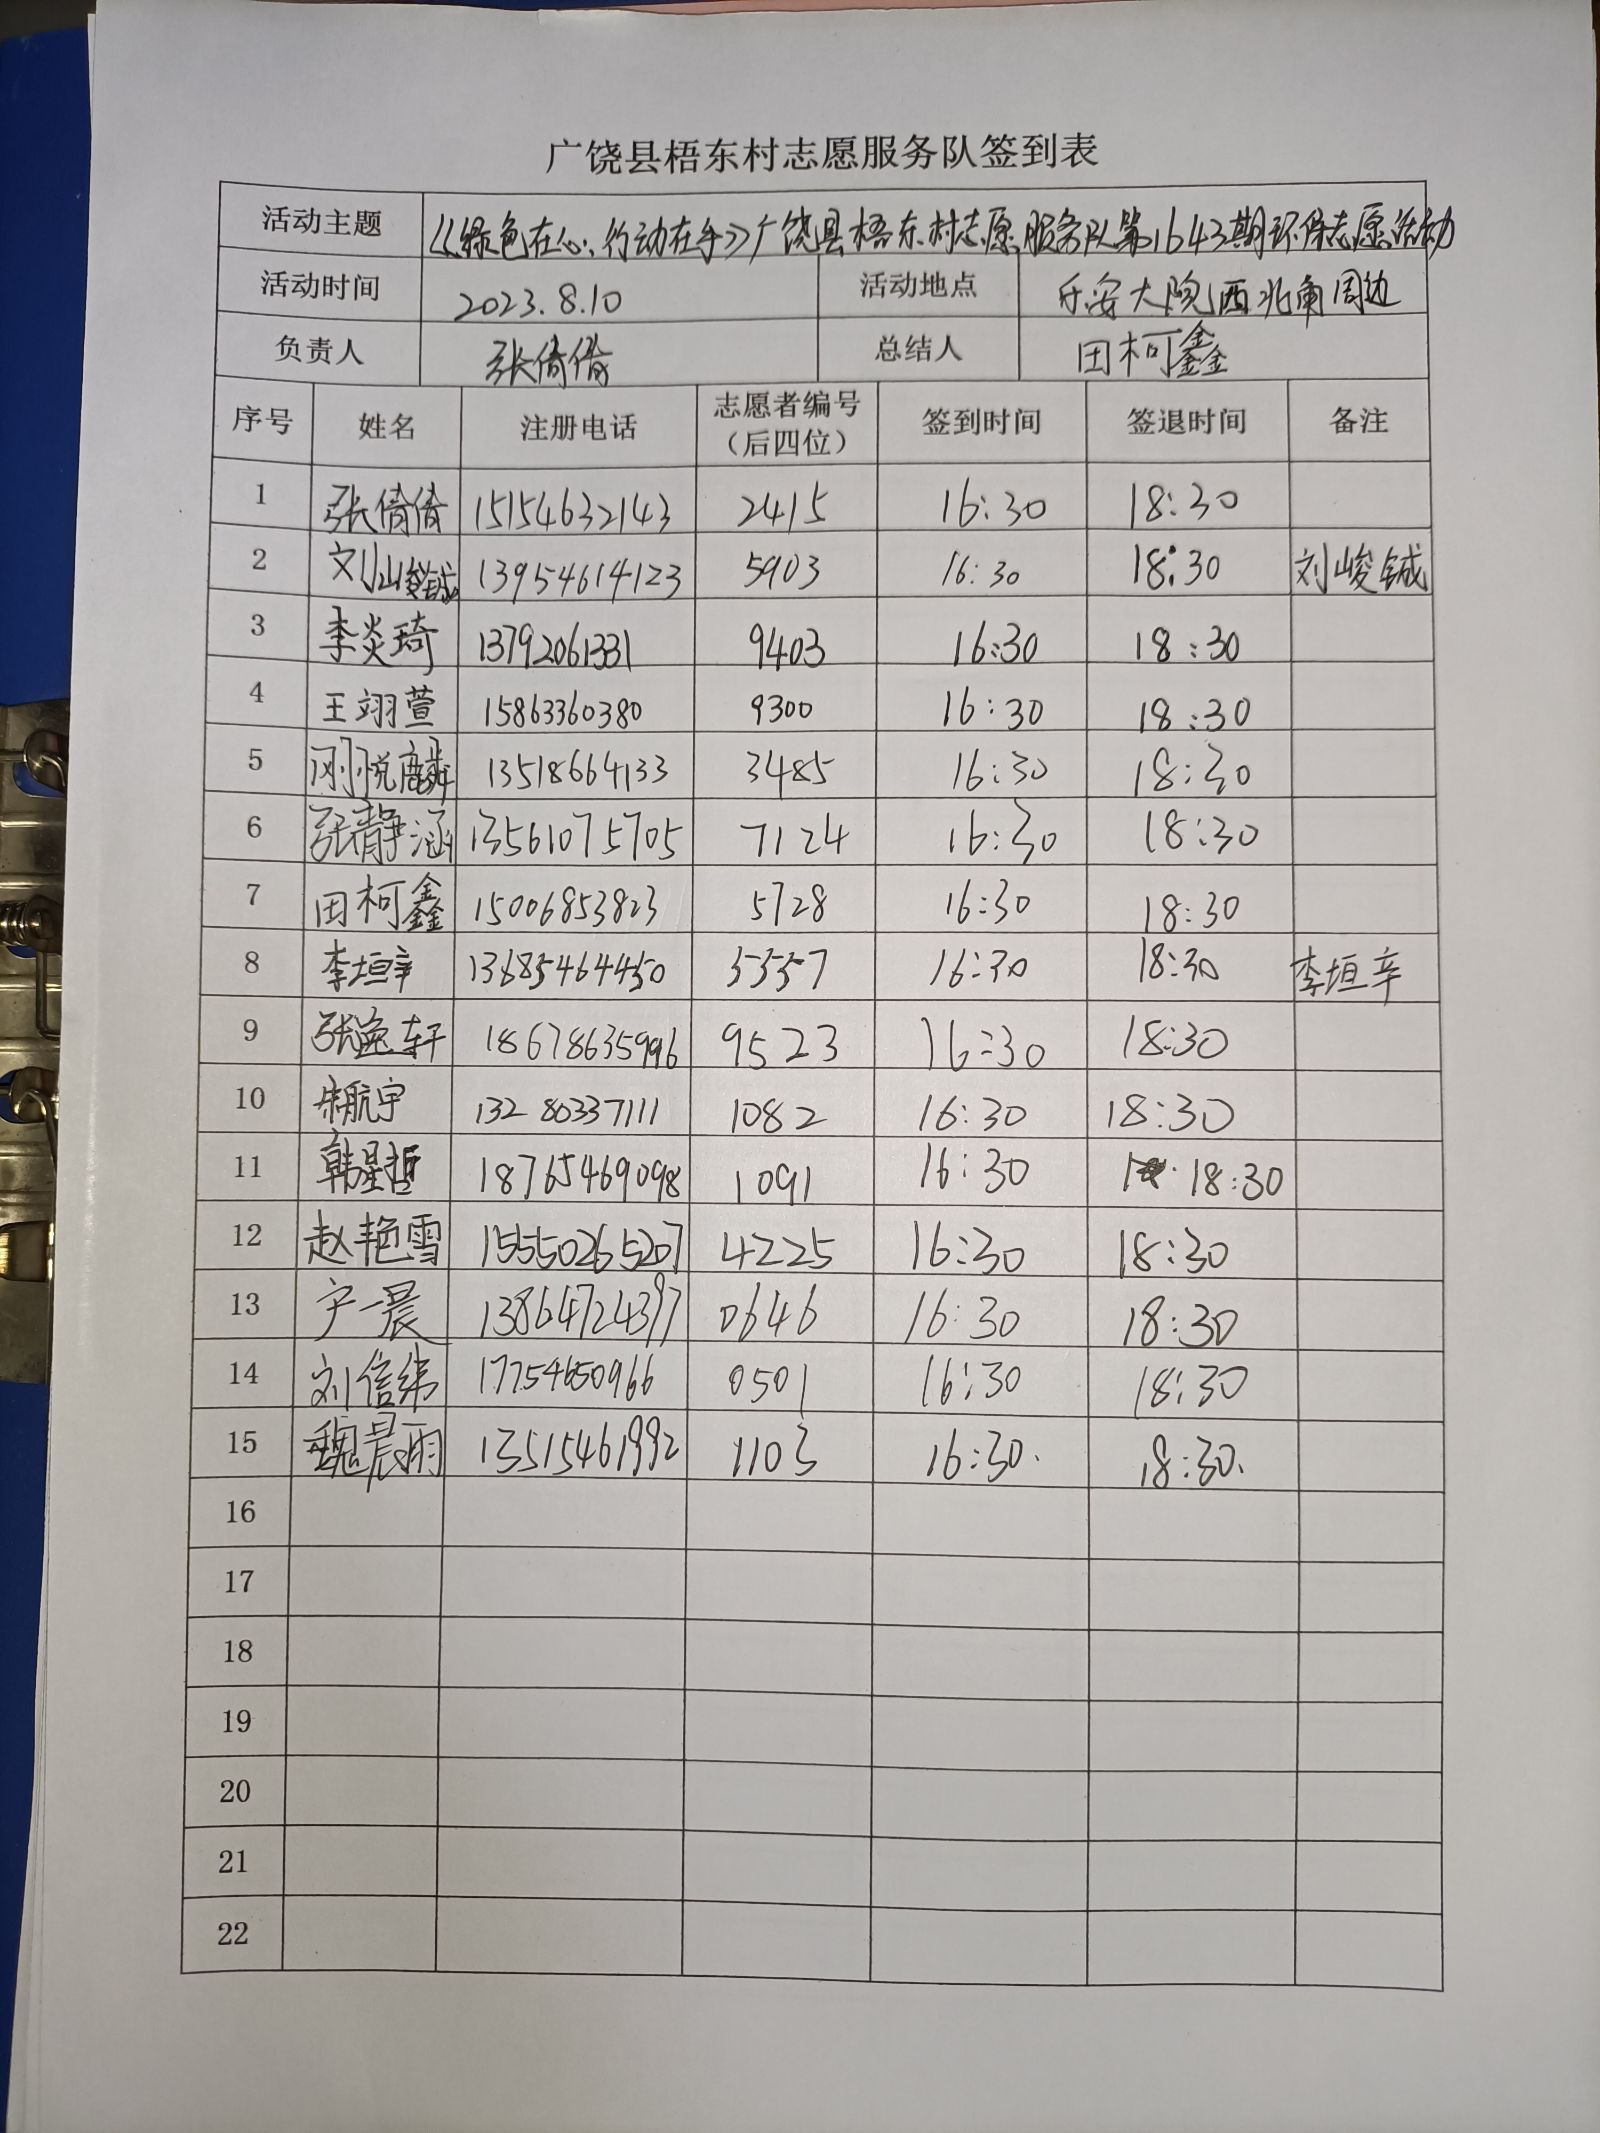 广饶县梧东村志愿服务队签到表
活动主题 《绿色在心、行动在手》广饶县梧东村志愿服务队第1643期环保志愿活动
活动时间 2023.8.10 活动地点 乐安大院西北角周边
负责人 张倩倩 总结人 田柯鑫
序号 姓名 注册电话 志愿者编号（后四位） 签到时间 签退时间 备注
1 张倩倩 15154632143 2415 16:30 18:30
2 刘峻铖 13954614123 5903 16:30 18:30 刘峻铖
3 李炎琦 13792061331 9403 16:30 18:30
4 王翊萱 15863360380 9300 16:30 18:30
5 刚悦麟 13518664133 3485 16:30 18:30
6 张静涵 13561075705 7124 16:30 18:30
7 田柯鑫 15006853823 5728 16:30 18:30
8 李垣辛 13685464450 5557 16:30 18:30 李垣辛
9 张逸轩 18678635996 9523 16:30 18:30
10 朱航宇 13280337111 1082 16:30 18:30
11 韩星哲 18765469098 1091 16:30 18:30
12 赵艳雪 15550265207 4225 16:30 18:30
13 宁一晨 13864724397 0646 16:30 18:30
14 刘信纬 17754650966 0501 16:30 18:30
15 魏晨雨 13515461992 1103 16:30. 18:30.
16
17
18
19
20
21
22